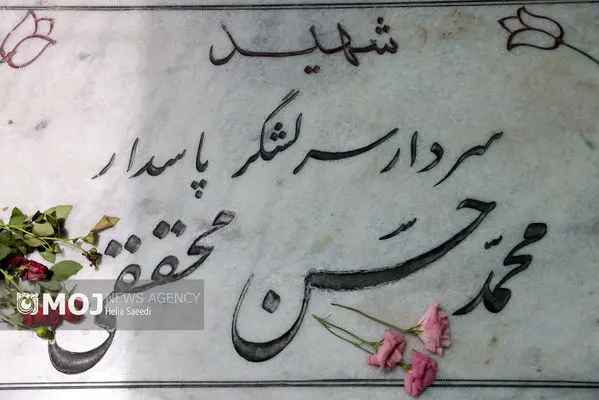 شهید
سردار سرلشگر پاسدار
محمدحسن محققی
MOJ NEWS AGENCY
Helia Saeedi